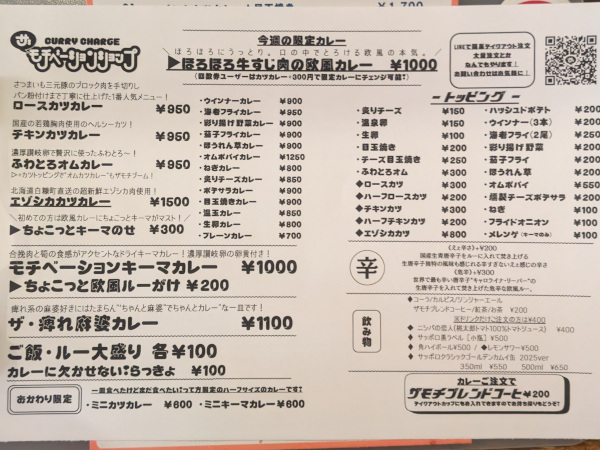 ¥1,700
CURRY CHARGE
ザ・モチベーションショップ
今週の限定カレー
ほろほろにうっとり。口の中でとろける欧風の本気。
▶ほろほろ牛すじ肉の欧風カレー ¥1000
(回数券ユーザーはカツカレー+300円で限定カレーにチェンジ可能!)
LINEで簡単テイクアウト注文
大量注文とか
なんでもやります!
お問い合わせはお気軽に!
さつまいも三元豚のブロック肉を手切りし
パン粉付けまで丁寧に仕上げた1番人気メニュー!
ロースカツカレー ▶¥950
国産の若鶏胸肉使用のヘルシーカツ!
チキンカツカレー ▶¥950
濃厚讃岐卵で贅沢に使ったふわとろ〜!
ふわとろオムカレー ▶¥950
▷+カツトッピングで"オムカツカレー"もザモチブーム!
北海道白糠町直送の超新鮮エゾシカ肉使用!
エゾシカカツカレー ▶¥1500
初めての方は欧風カレーにちょこっとキーマがマスト!
▶ちょこっとキーマのせ ¥300
・ウインナーカレー ¥900
・海老フライカレー ¥950
・彩り揚げ野菜カレー ¥900
・茄子フライカレー ¥900
・ほうれん草カレー ¥900
・オムポパイカレー ¥1250
・ねぎカレー ¥800
・炙りチーズカレー ¥850
・ポテサラカレー ¥900
・目玉焼きカレー ¥900
・温玉カレー ¥850
・生卵カレー ¥800
・プレーンカレー ¥700
合挽肉と筍の食感がアクセントなドライキーマカレー!濃厚讃岐卵の卵黄付き!
モチベーションキーマカレー ¥1000
▶ちょこっと欧風ルーがけ ¥200
痺れ系の麻婆好きにはたまらん"ちゃんと麻婆"でちゃんとカレー"な一皿です!
ザ・痺れ麻婆カレー ¥1100
ご飯・ルー大盛り 各¥100
カレーに欠かせない?らっきょ ¥100
おかわり限定
一皿食べたけどまだ食べたい!って方限定のハーフサイズのカレーです?
・ミニカツカレー ¥600 ・ミニキーマカレー ¥600
- トッピング -
・炙りチーズ ¥150
・温泉卵 ¥150
・生卵 ¥100
・目玉焼き ¥200
・チーズ目玉焼き ¥250
・ふわとろオム ¥250
◆ロースカツ ¥350
◆ハーフロースカツ ¥200
◆チキンカツ ¥300
◆ハーフチキンカツ ¥200
◆エゾシカカツ ¥800
・ハッシュドポテト ¥200
・ウインナー(3本) ¥200
・海老フライ(2尾) ¥250
・彩り揚げ野菜 ¥200
・茄子フライ ¥200
・ほうれん草 ¥200
・オムポパイ ¥550
・燻製チーズポテサラ ¥200
・ねぎ ¥100
・フライドオニオン ¥100
・メレンゲ(キーマのみ) ¥100
辛
《えぇ辛さ》+¥200
国産生青唐辛子をルーに入れて焚き上げる
生唐辛子独特の風味も感じれる辛すぎないええ感じの辛さ
《危辛》+¥300
世界で最も辛い唐辛子"キャロライナ・リーパー"の
生唐辛子を入れて焚き上げた危辛な欧風ルー。
飲み物
◆コーラ/カルピス/ジンジャーエール
ザモチブレンドコーヒー/紅茶/お茶 ¥200
※ドリンクだけご注文の方は¥400
◆ニシパの恋人(桃太郎トマト100%トマトジュース) ¥400
◆サッポロ黒ラベル【小瓶】 ¥500
◆角ハイボール¥500 / ◆レモンサワー¥500
◆サッポロクラシックゴールデンカムイ缶 2025ver
350ml ¥550 500ml ¥650
カレーご注文で
ザモチブレンドコーヒー¥200
テイクアウトカップにもお入れできますのでお持ち帰りもどうぞ?